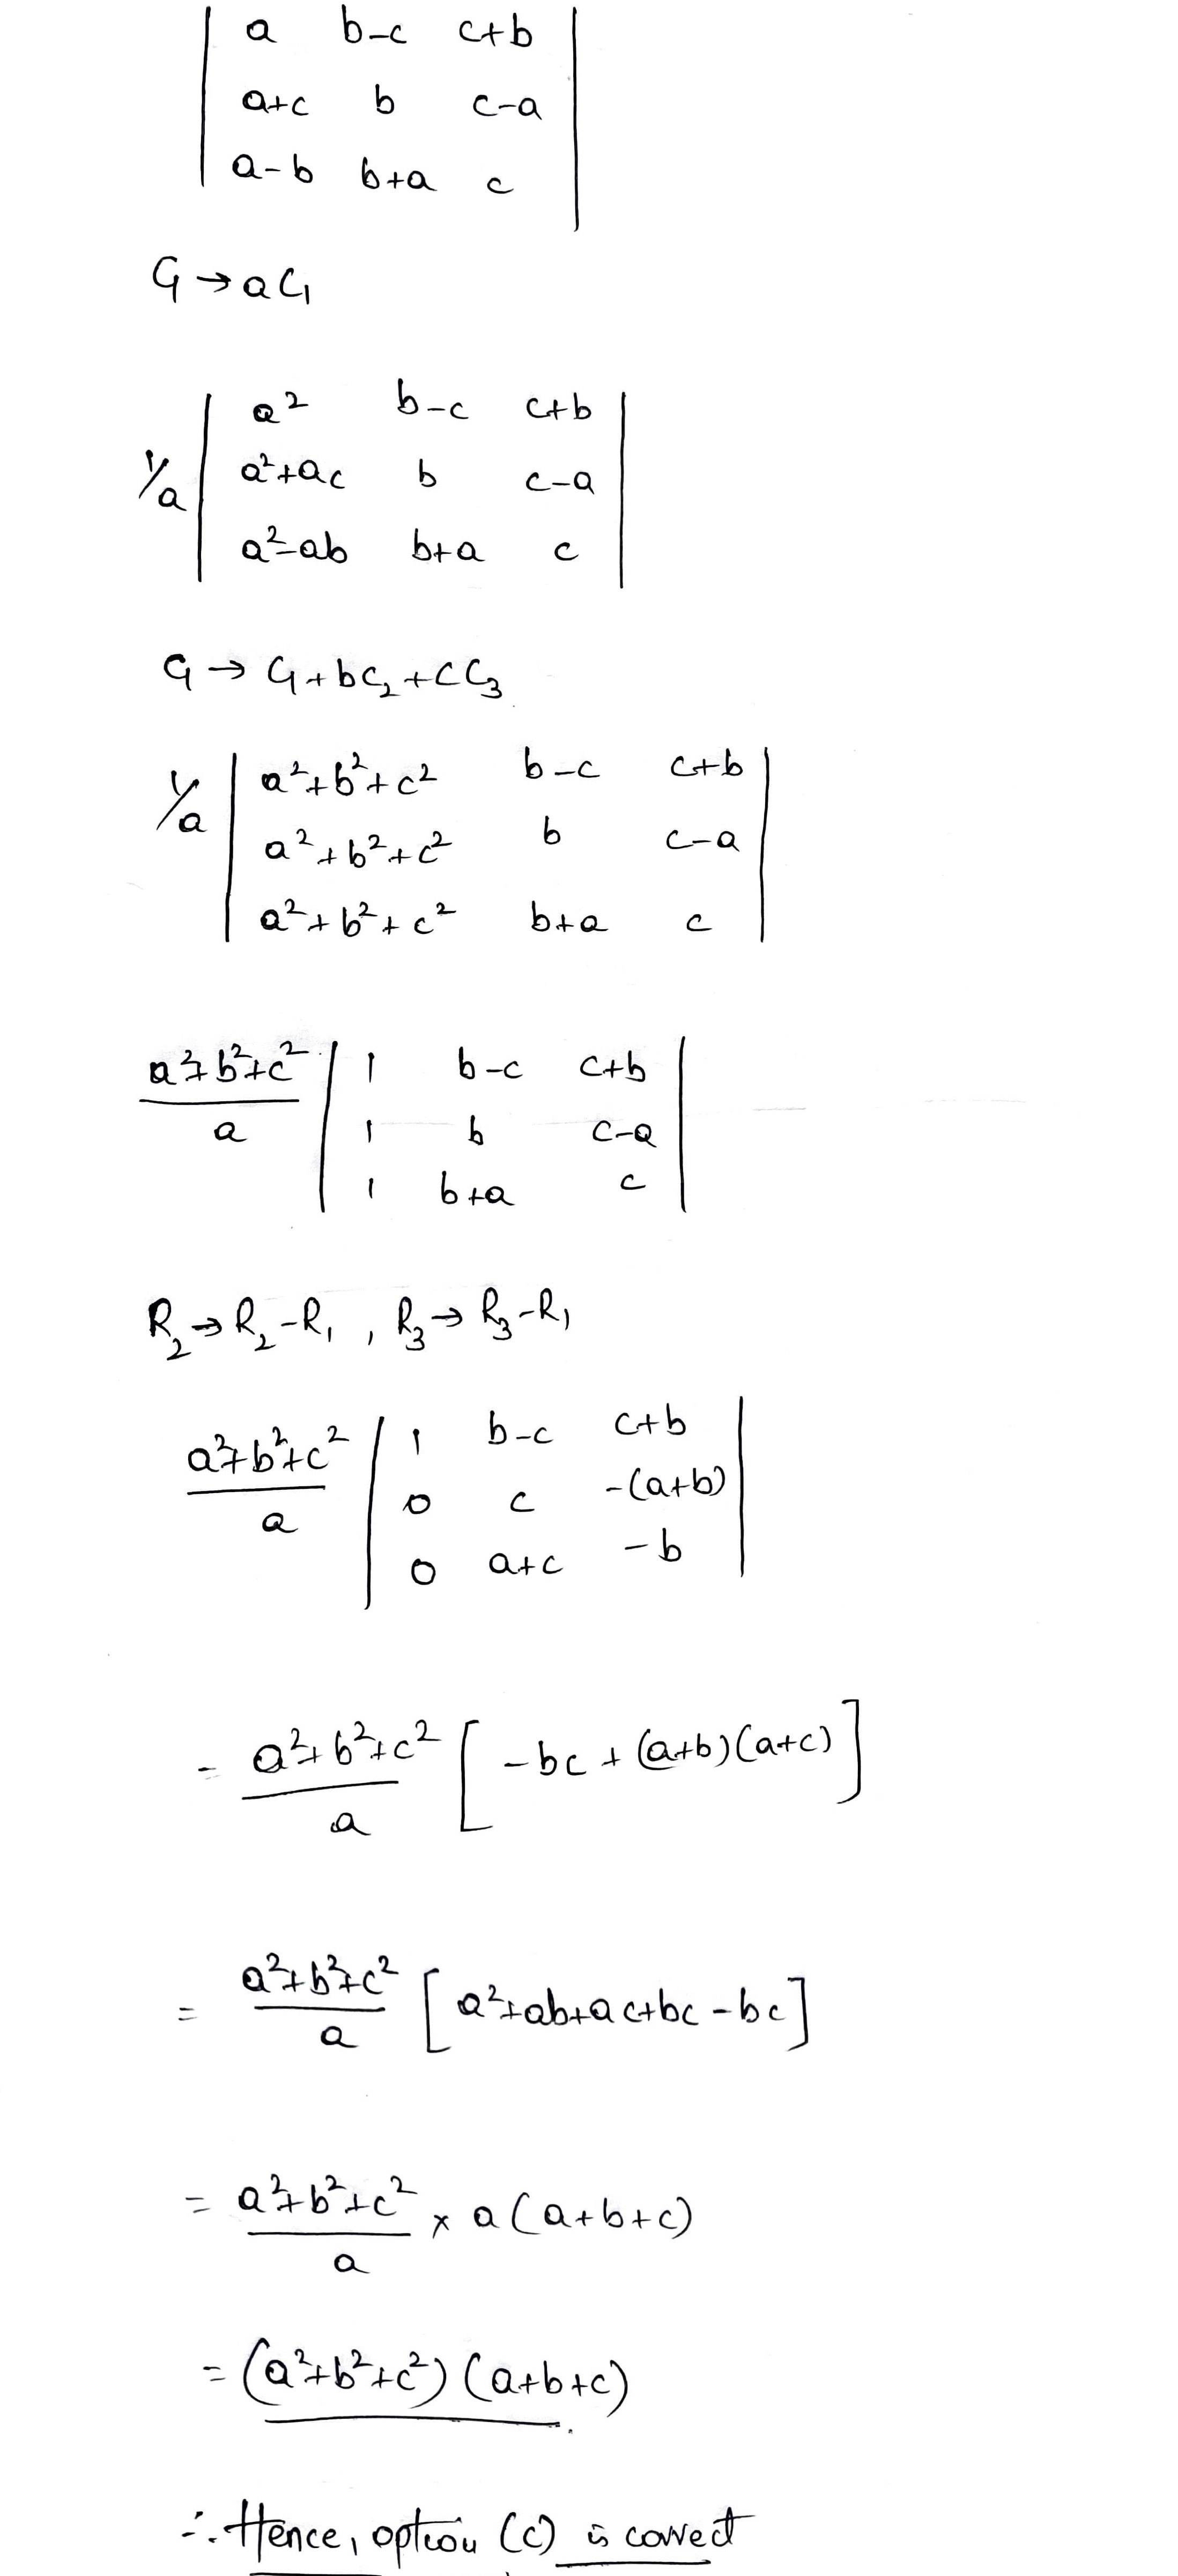 | a b-c c+b |
| a+c b c-a |
| a-b b+a c |
C₁ → aC₁
1/a | a² b-c c+b |
| a²+ac b c-a |
| a²-ab b+a c |
C₁ → C₁+bC₂+CC₃
1/a | a²+b²+c² b-c c+b |
| a²+b²+c² b c-a |
| a²+b²+c² b+a c |
(a²+b²+c²)/a | 1 b-c c+b |
| 1 b c-a |
| 1 b+a c |
R₂ → R₂-R₁ , R₃ → R₃-R₁
(a²+b²+c²)/a | 1 b-c c+b |
| 0 c -(a+b) |
| 0 a+c -b |
= (a²+b²+c²)/a [ -bc + (a+b)(a+c) ]
= (a²+b²+c²)/a [ a²+ab+ac+bc-bc ]
= (a²+b²+c²)/a × a(a+b+c)
= (a²+b²+c²)(a+b+c).
∴ Hence, option (c) is correct